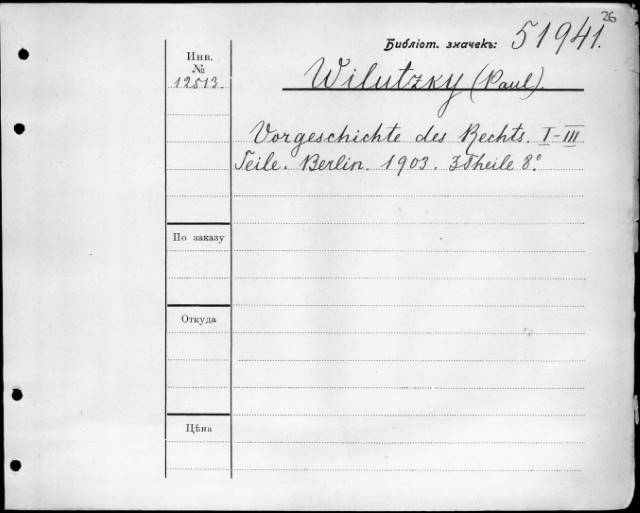 26
Библіот. значекъ: 51941.
Инв.
№
12513.
Wilutzky (Paul).
Vorgeschichte des Rechts. I-III
Teile. Berlin. 1903. 3 Theile 8°.
По заказу
Откуда
Цѣна